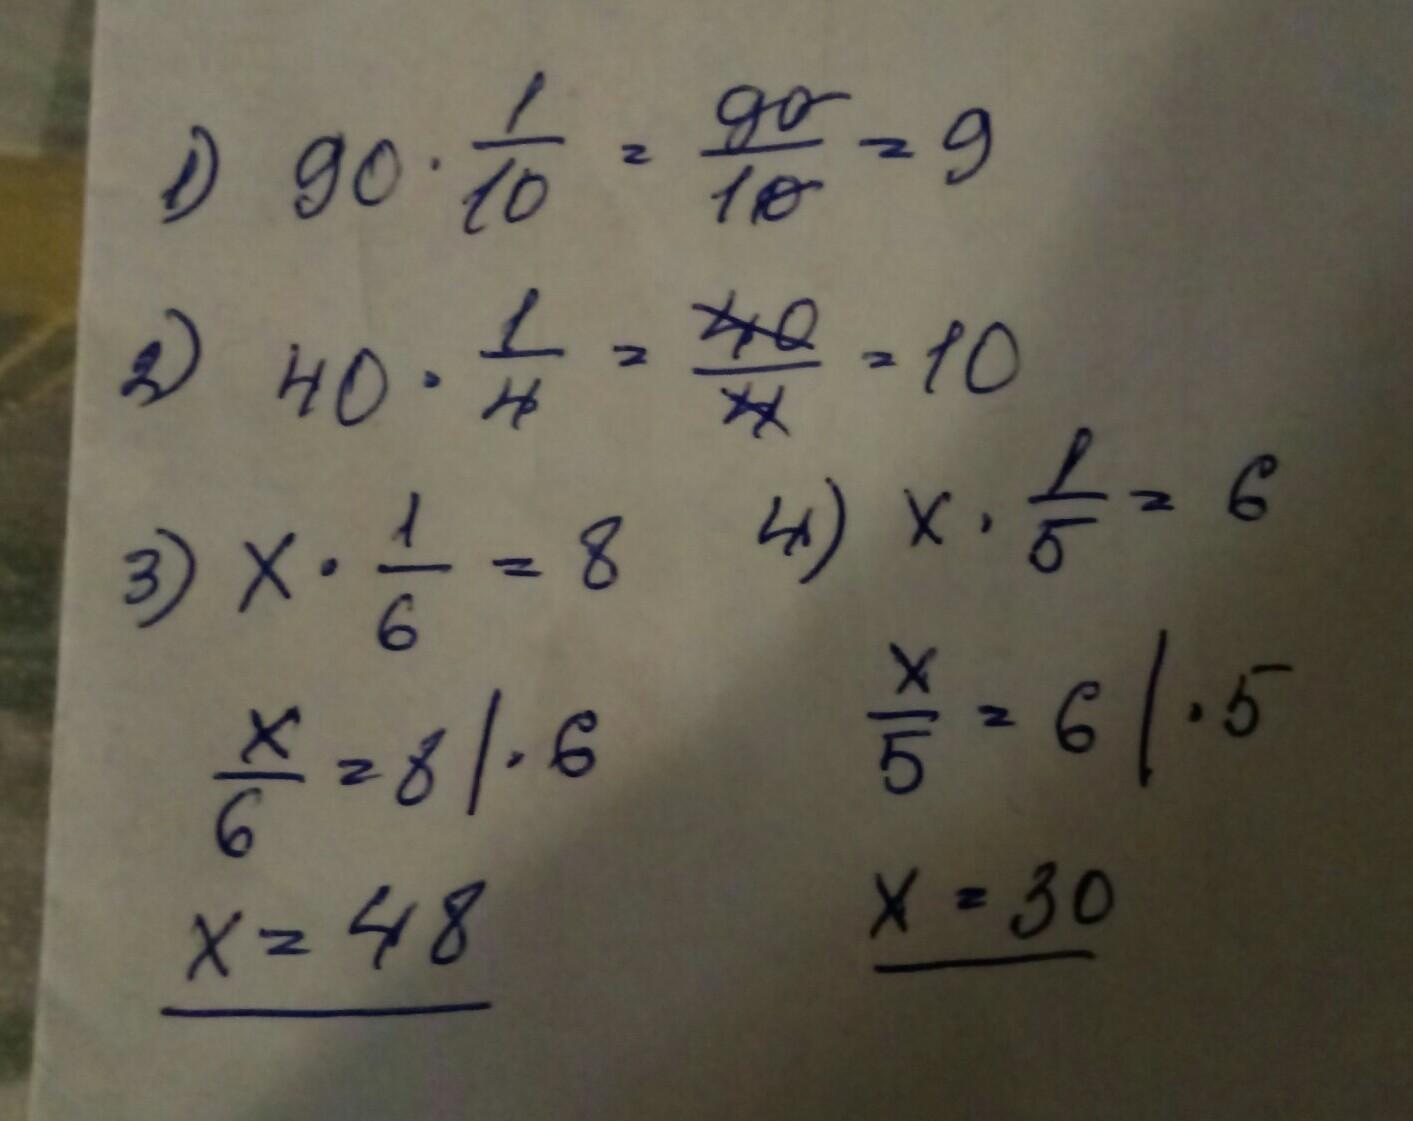 1) 90 · 1/10 = 90/10 = 9
2) 40 · 1/4 = 40/4 = 10
3) x · 1/6 = 8
x/6 = 8 | · 6
x = 48
4) x · 1/5 = 6
x/5 = 6 | · 5
x = 30